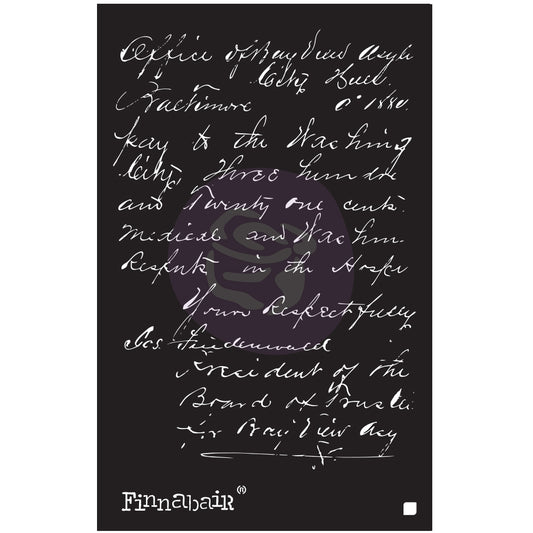 Office of Bay View Asyl
City Hall
Baltimore 1880.
pay to the Washing
City, Three hundre
and Twenty one cents.
Medical and Washin
Respects in the Hospi
Yours Respectfully
Jos. Friedenwald
President of the
Board of Truste
for Bay View Asy
Finnabair